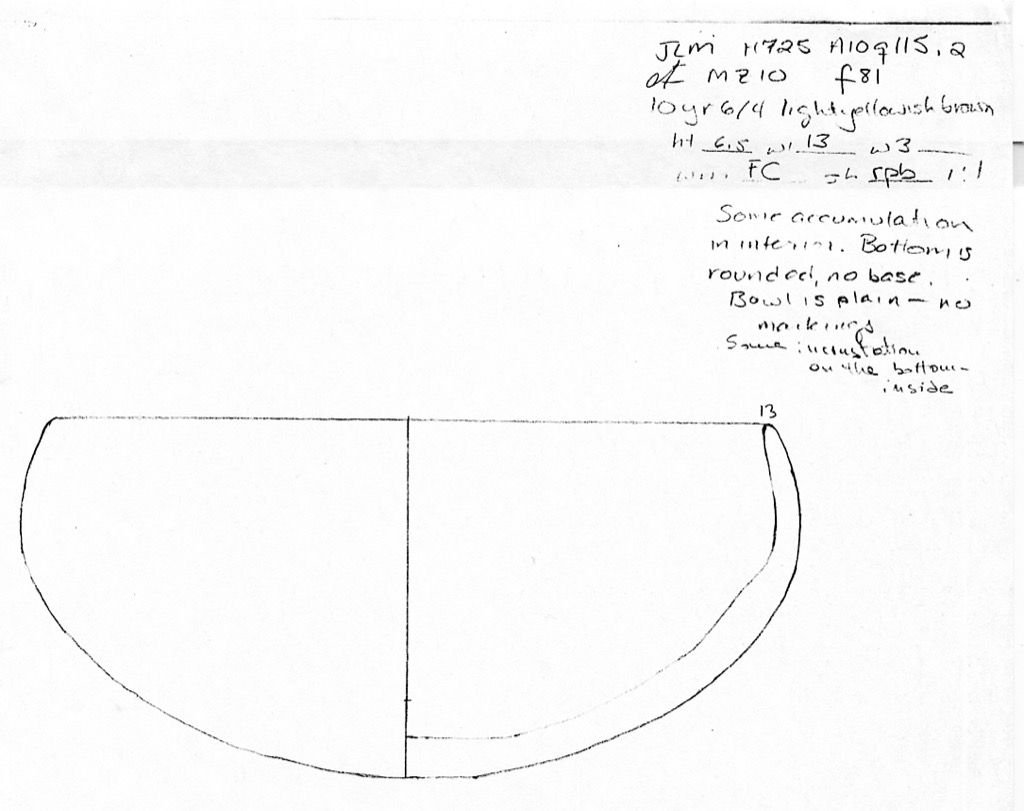 JLM H725 A10q115.2
of MZ10 f81
10yr 6/4 light yellowish brown
ht 6.5 13 w3
FC sh spb 1:1
Some accumulation
in interior. Bottom is
rounded, no base.
Bowl is plain – no
markings
Some incrustation
on the bottom –
inside
13